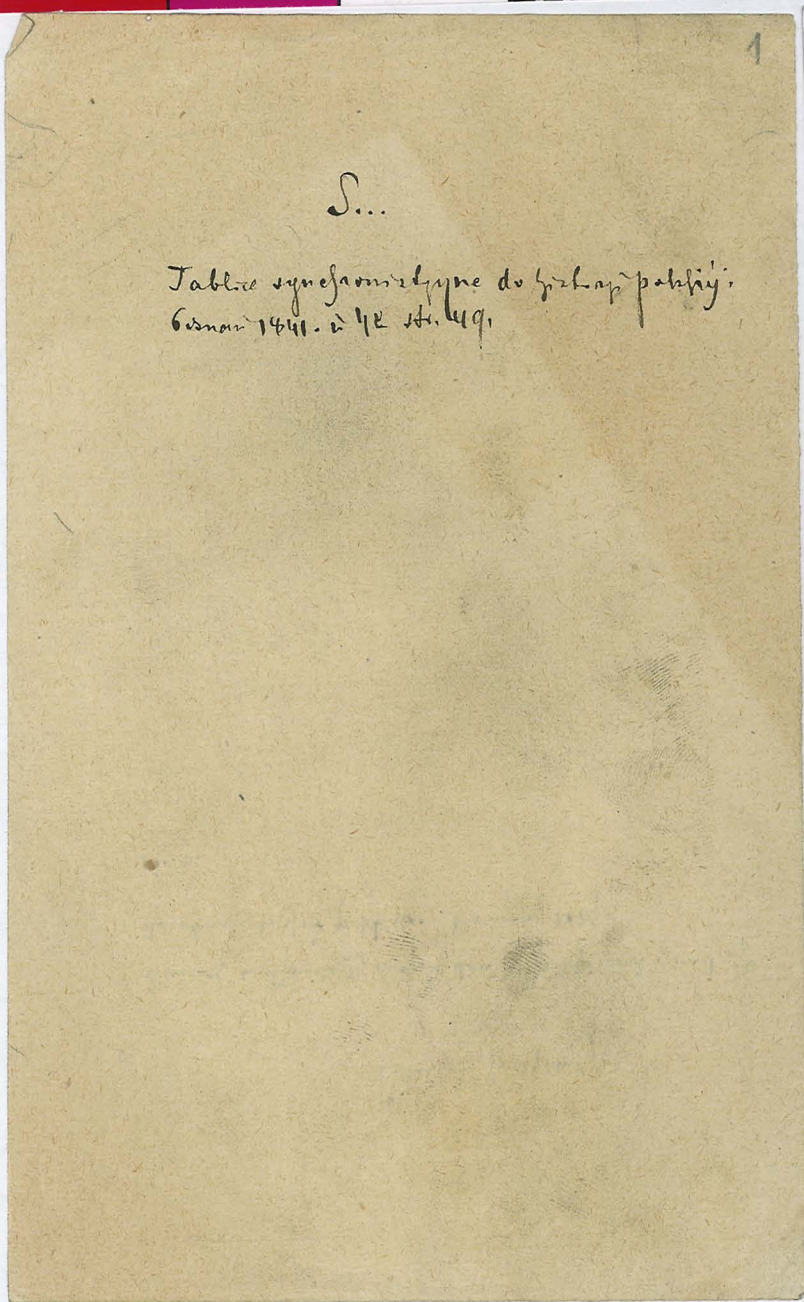 1
S...
Tablice synchronistyczne do historyi polskiéj.
Poznań 1841. w 4ce str. 49.